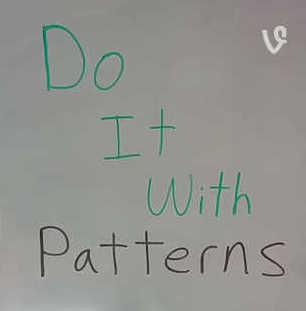 Do
It
With
Patterns